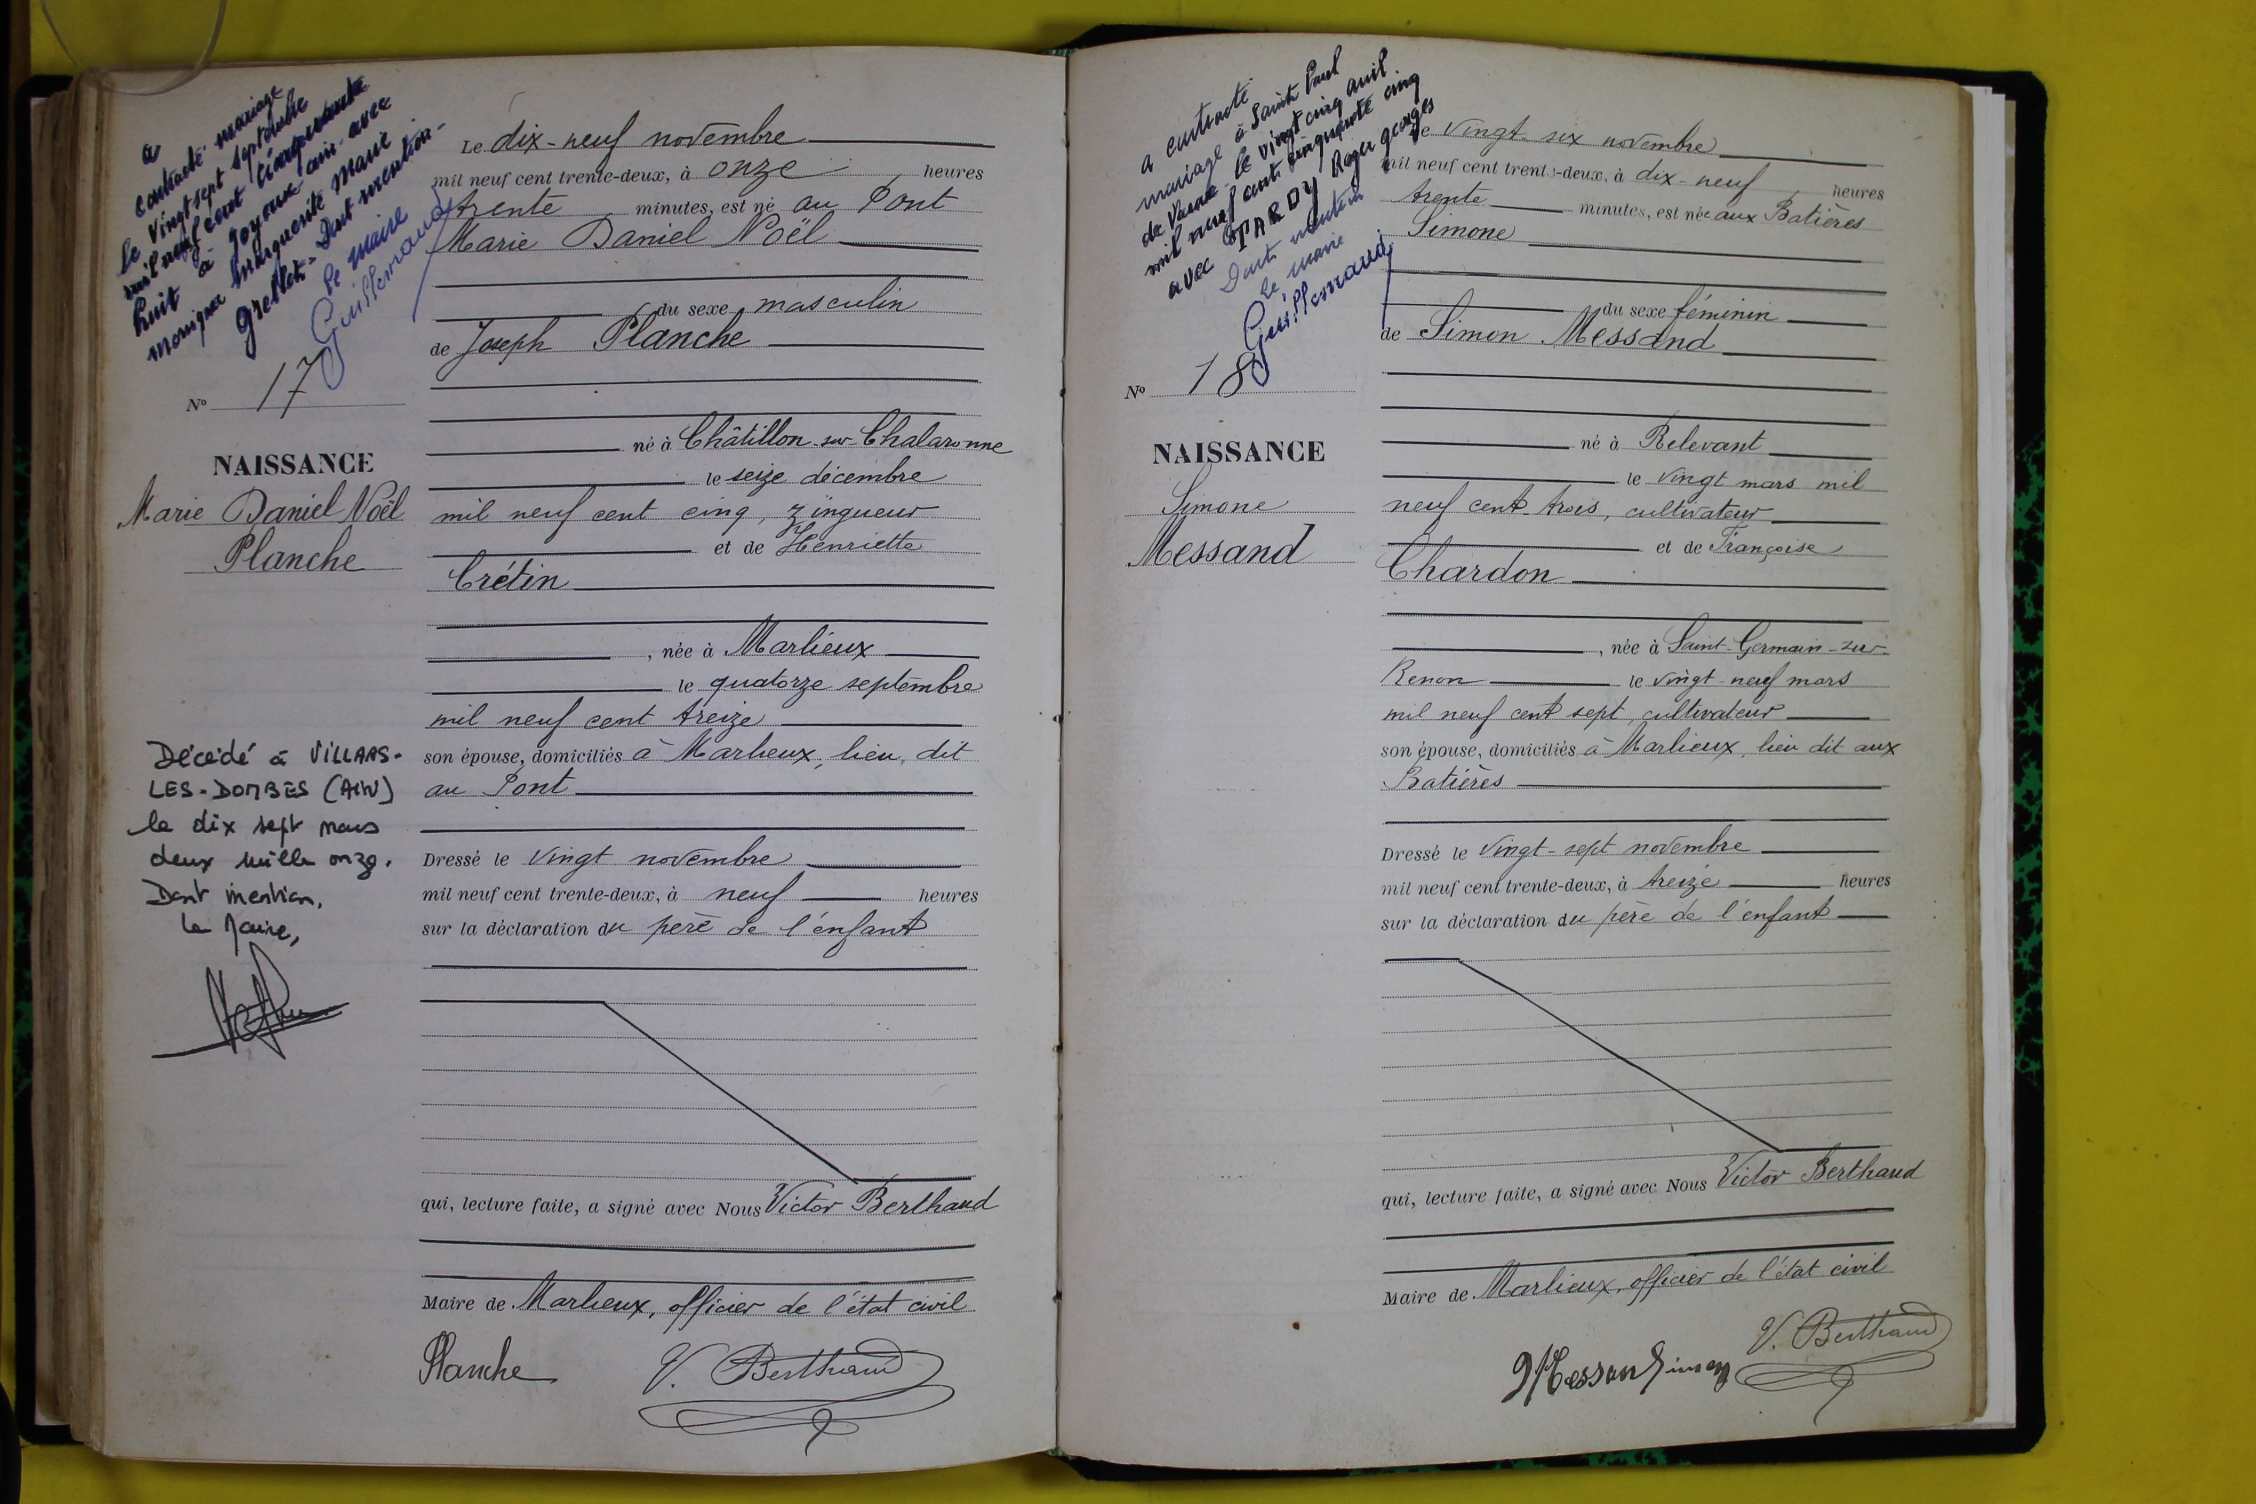 a
contracté mariage
le vingt sept septembre
mil neuf cent cinquante
huit à Joyeux ain - avec
monique marguerite marie
Grellet - Dont mention -
le maire
Guillemaud
N° 17
NAISSANCE
Marie Daniel Noël
Planche
Décédé à VILLARS-
LES-DOMBES (AIN)
le dix sept mars
deux mille onze.
Dont mention,
Le Maire,
Le dix-neuf novembre
mil neuf cent trente-deux, à onze heures
trente minutes, est né au Pont
Marie Daniel Noël
du sexe masculin
de Joseph Planche
né à Châtillon-sur-Chalaronne
le seize décembre
mil neuf cent cinq, zingueur
et de Henriette
Crétin
, née à Marlieux
le quatorze septembre
mil neuf cent treize
son épouse, domiciliés à Marlieux, lieu dit
au Pont
Dressé le vingt novembre
mil neuf cent trente-deux, à neuf heures
sur la déclaration du père de l'enfant
qui, lecture faite, a signé avec Nous Victor Berthaud
Maire de Marlieux, officier de l'état civil
Planche V. Berthaud
a contracté
mariage à Saint Paul
de Varax le vingt cinq avril
mil neuf cent cinquante cinq
avec TARDY Roger Georges
Dont mention
le maire
Guillemaud
N° 18
NAISSANCE
Simone
Messand
Le vingt-six novembre
mil neuf cent trente-deux, à dix-neuf heures
trente minutes, est née aux Batières
Simone
du sexe féminin
de Simon Messand
né à Relevant
le vingt mars mil
neuf cent trois, cultivateur
et de Françoise
Chardon
, née à Saint-Germain-sur-
Renon le vingt-neuf mars
mil neuf cent sept, cultivateur
son épouse, domiciliés à Marlieux, lieu dit aux
Batières
Dressé le vingt-sept novembre
mil neuf cent trente-deux, à treize heures
sur la déclaration du père de l'enfant
qui, lecture faite, a signé avec Nous Victor Berthaud
Maire de Marlieux, officier de l'état civil
V. Berthaud
Messan Simon